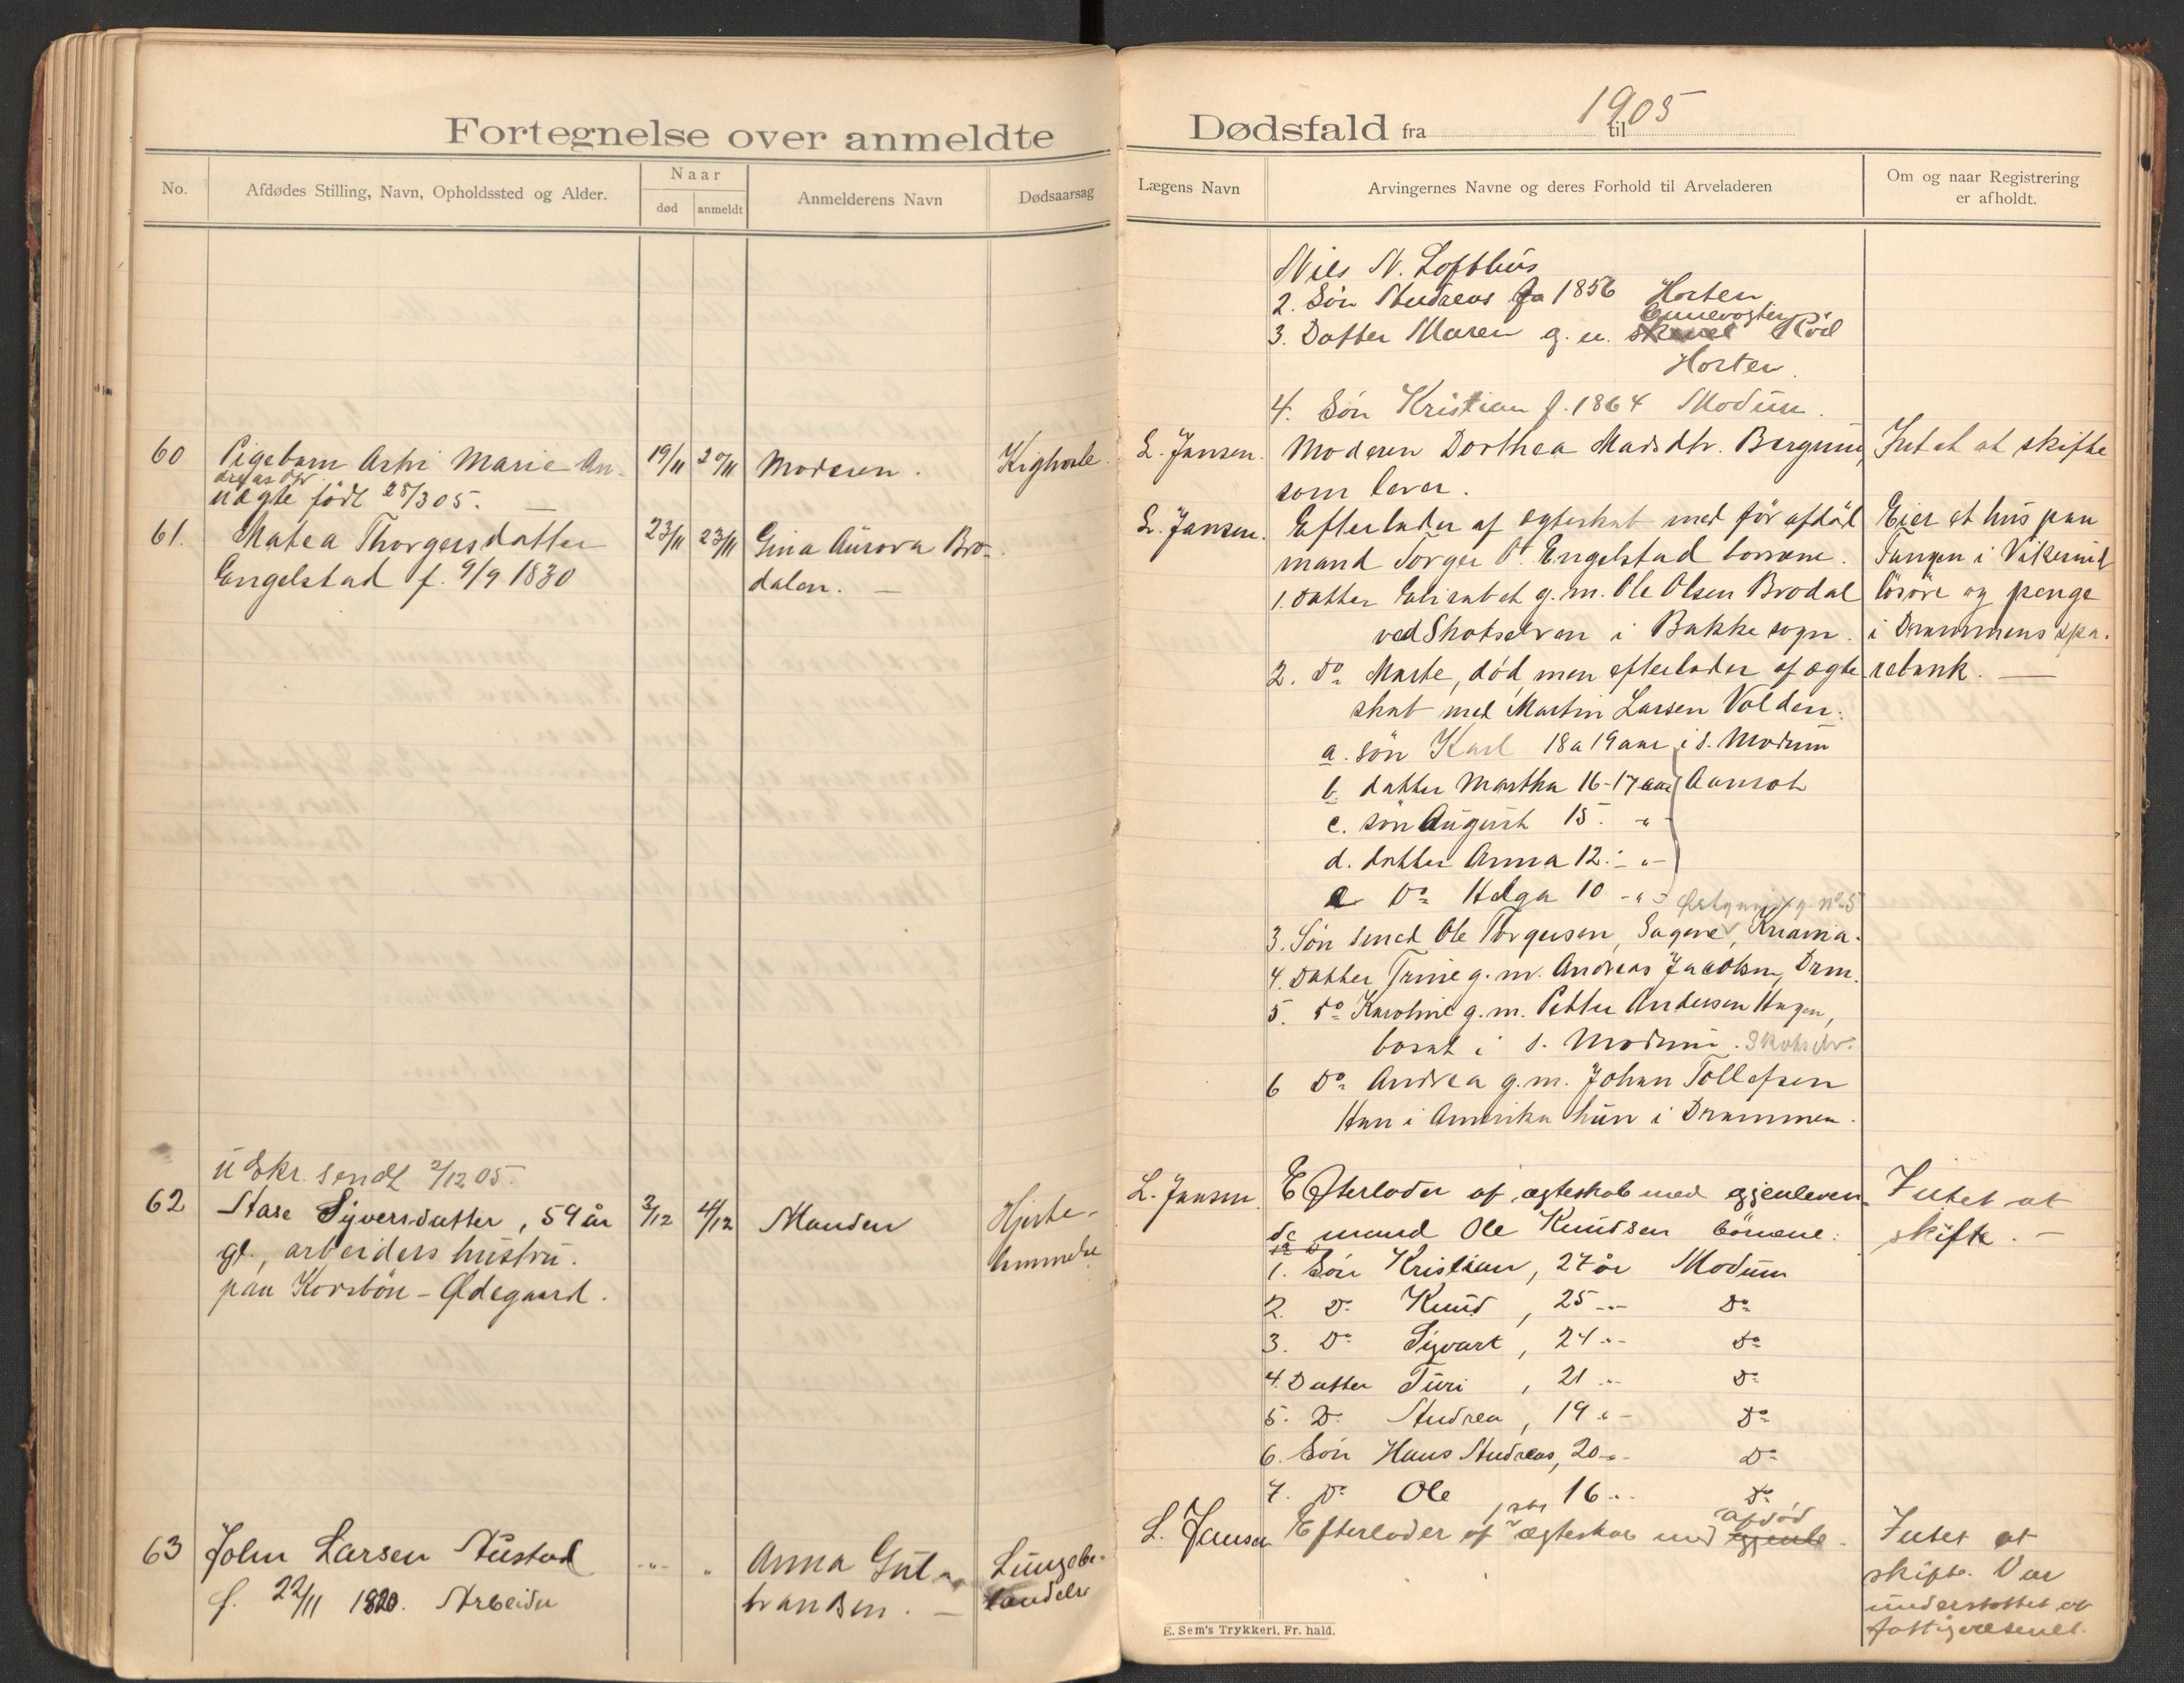 Fortegnelse over anmeldte
No.
Afdødes Stilling, Navn, Opholdssted og Alder.
Naar
død
anmeldt
Anmelderens Navn
Dødsaarsag
60 Pigebarn Astri Marie An- 19/11 20/11 Moderen. Kighoste
dreasdtr.
uægte födt 25/3 05.
61. Matea Thorgersdatter 23/11 23/11 Gina Aurora Bro-
Engelstad f. 9/9 1830 dalen. —
U Skr. sendt 2/12 05.
62 Stase Syversdatter, 59 år 3/12 4/12 Manden Hjerte-
gl., arbeiders hustru.
paa Korsbön - Ødegaard.
63 John Larsen Nustad -"- " Anna Gul- Lungebe-
f. 22/11 1820. Arbeider bransen. — tændelse
Dødsfald fra 1905 til
Lægens Navn
Arvingernes Navne og deres Forhold til Arveladeren
Om og naar Registrering
er afholdt.
Nils N. Lofthus
2. Sön Andreas fø 1856 Horten
3. Datter Maren g. m.
Horten.
4. Sön Kristian f. 1864 Modum.
L. Jansen. Moderen Dorthea Madsdtr. Bergum, Intet at skifte
som lever.
L. Jansen. Efterlader af ægteskab med för afdöd Eier et hus paa
mand Torger O. Engelstad börnene. Tangen i Vikersund
1. Datter Elisabet g. m. Ole Olsen Brodal lösöre og penge
ved Skotselven i Bakke sogn. i Drammens spa-
2. Do Marte, död, men efterlader af ægte- rebank. —
skab med Martin Larsen Volden:
a. sön Karl 18 a 19 aar i S. Modum
b. datter Martha 16-17 aar Aamot
c. sön August 15. -"-
d. datter Anna 12. -"-
e Do Helga 10 -"-
3. Sön smed Ole Torgersen, Sagene, Kr.ania.
4. Datter Trine g. m. Andreas Jacobsen, Drm.
5. Do Karoline g. m. Petter Andersen Hagen,
bosat i S. Modum. Skotselv.
6 Do Andrea g. m. Johan Tollefsen
Han i Amerika hun i Drammen.
L. Jansen. Efterlader af ægteskab med gjenleven- Intet at
de mand Ole Knudsen börnene: skifte. —
1. Sön Kristian, 27 år Modum
2. Do Knud, 25 -"- Do
3. Do Syvart, 24 -"- Do
4. Datter Turi, 21 -"- Do
5. Do Andrea, 19 -"- Do
6. Sön Hans Andreas, 20 -"- Do
7. Do Ole 16 -"- Do
afdöd
L. Jansen Efterlader af ægteskab med gjenle- Intet at
skifte. Var
understöttet af
fattigvæsenet.
E. Sem's Trykkeri, Fr.hald.